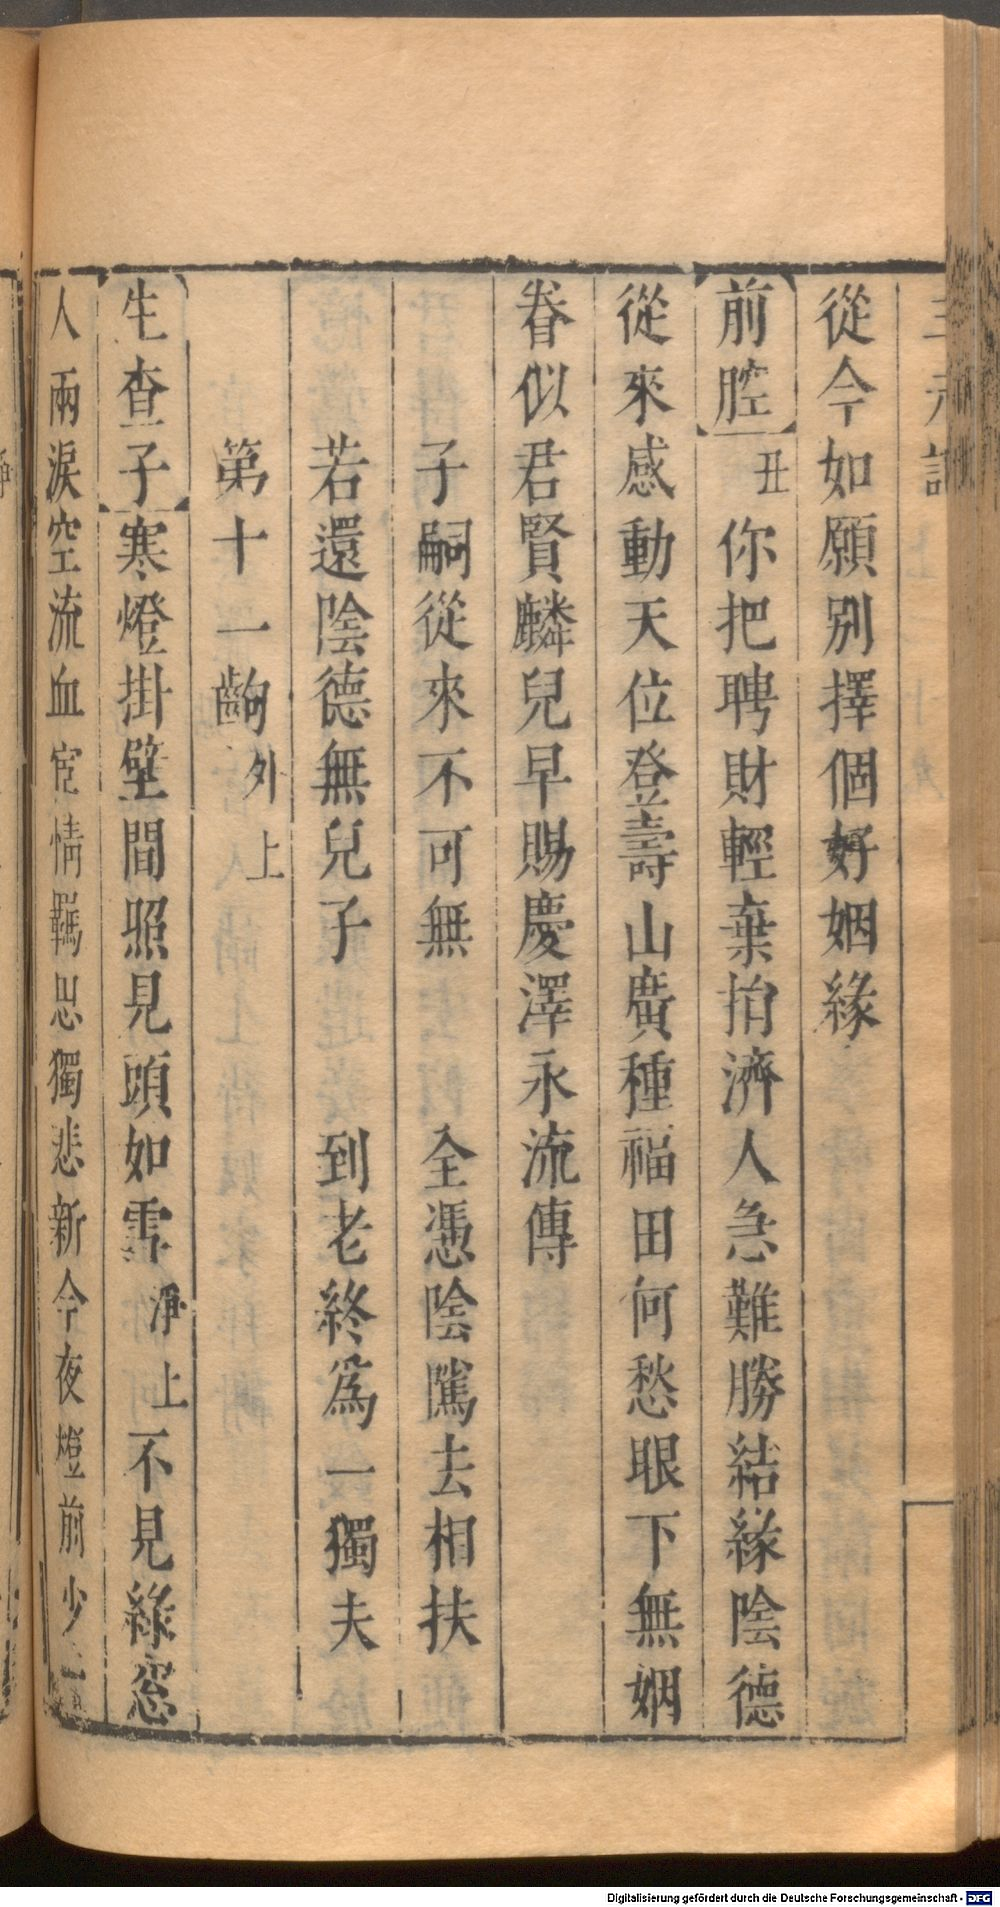 從今如願別擇個好姻緣
前腔丑你把聘財輕棄捨濟人急難勝結緣陰德
從來感動天位登壽山廣種福田何愁眼下無姻
眷似君賢麟兒早賜慶澤永流傳
子嗣從來不可無　全憑陰隲去相扶
若還陰德無兒子　到老終爲一獨夫
第十一齣外上
生查子寒燈掛壁間照見頭如雪淨上不見綠窓
人兩淚空流血宦情羈思獨悲新今夜燈前少一
Digitalisierung gefördert durch die Deutsche Forschungsgemeinschaft - DFG